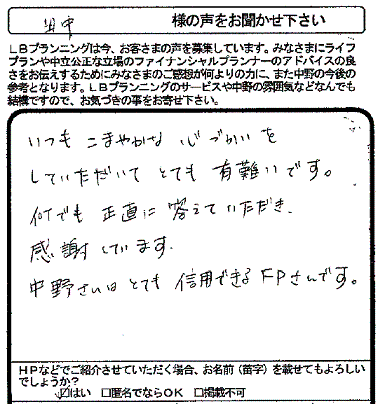 田中 様の声をお聞かせ下さい
LBプランニングは今、お客さまの声を募集しています。みなさまにライフ
プランや中立公正な立場のファイナンシャルプランナーのアドバイスの良
さをお伝えするためにみなさまのご感想が何よりの力に、また中野の今後の
参考となります。LBプランニングのサービスや中野の雰囲気などなんでも
結構ですので、お気づきの事をお寄せ下さい。
いつもこまやかな心づかいを
していただいてとても有難いです。
何でも正直に答えていただき、
感謝しています。
中野さんはとても信用できるFPさんです。
HPなどでご紹介させていただく場合、お名前(苗字)を載せてもよろしい
でしょうか?
☑はい □匿名でならOK □掲載不可